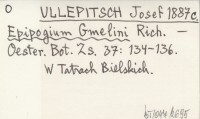 O VLLEPITSCH Josef 1887c.
Epipogium Gmelini Rich. —
Oester. Bot. Zs. 37: 134-136.
W Tatrach Bielskich.